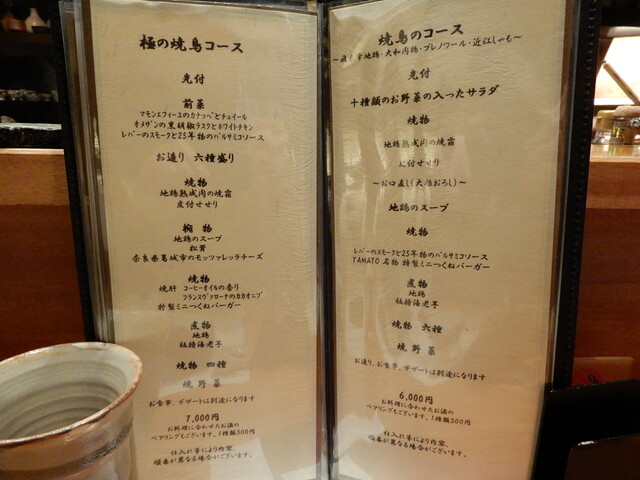 極の焼鳥コース
先付
前菜
マモンエフィーユのカナッペとチュイール
オメザンの黒胡椒ラスクとホワイトチキン
レバーのスモークと25年物のバルサミコソース
お造り 六種盛り
焼物
地鶏熟成肉の焼霜
皮付せせり
椀物
地鶏のスープ
松茸
奈良県葛城市のモッツァレッラチーズ
焼物
焼肝 コーヒーオイルの香り
フランスヴァローナのカカオニブ
特製ミニつくねバーガー
煮物
地鶏
佐持海老芋
焼物 四種
焼野菜
お食事、デザートは別途になります
7,000円
お料理に合わせたお酒の
ペアリングもございます。1種類500円
仕入れ等により内容、
順番が異なる場合がございます。
焼鳥のコース
地鶏・大和肉鶏・プレノワール・近江しゃも〜
先付
十種類のお野菜の入ったサラダ
焼物
地鶏熟成肉の焼霜
皮付せせり
〜お口直し(大根おろし)〜
地鶏のスープ
焼物
レバーのスモークと25年物のバルサミコソース
YAMATO 名物 特製ミニつくねバーガー
煮物
地鶏
佐持海老芋
焼物 六種
焼野菜
お造り、お食事、デザートは別途になります
6,000円
お料理に合わせたお酒の
ペアリングもございます。1種類500円
仕入れ等により内容、
順番が異なる場合がございます。